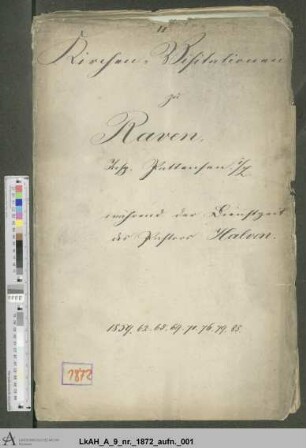 Kirchen-Visitationen
zu
Raven.
Insp. Pattensen
während der Dienstzeit
des Pastors Halven.
1859. 63. 65. 69. 71. 76. 79. 85.
1872
LkAH_A_9_nr._1872_aufn._001